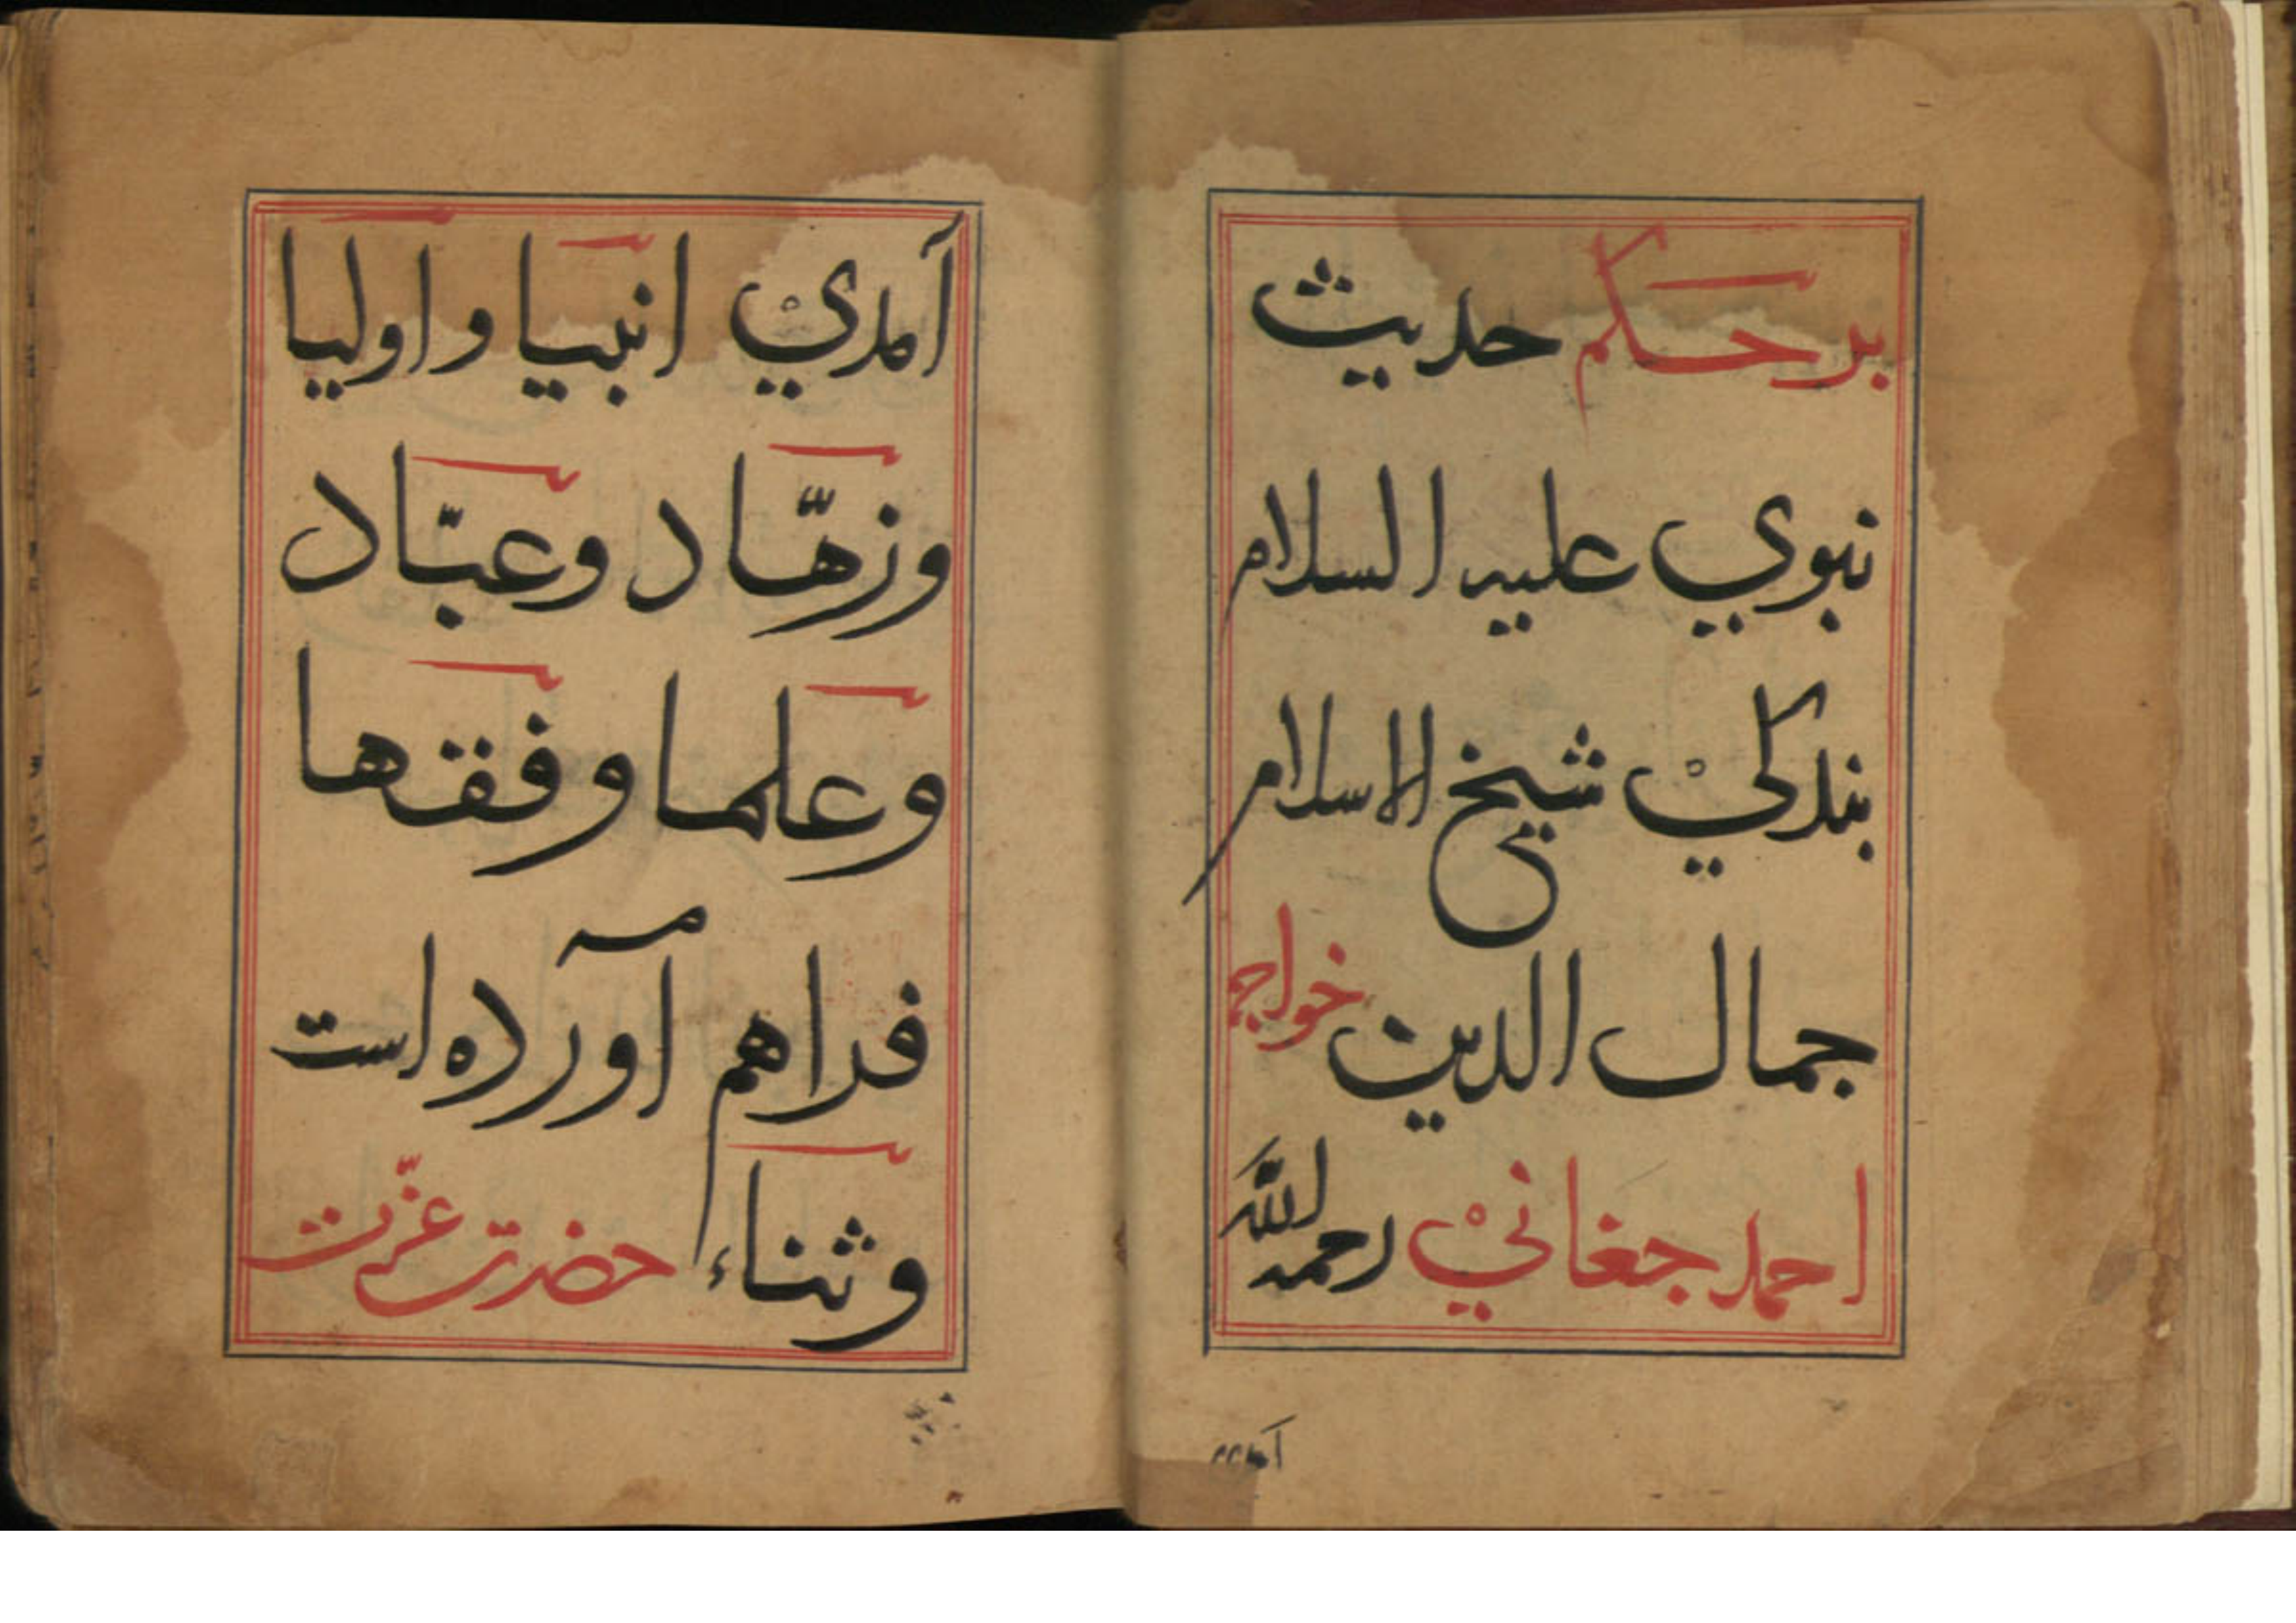 بر حکم حدیث
نبوي علیه السلام
بندکيْ شیخ الاسلام
جمال الدین خواجه
احمد جغانيْ رحمه الله
آمديْ انبیا و اولیا
وزهّاد وعبّاد
وعلما وفقها
فراهم آورده است
وثناء حضرت عزّت